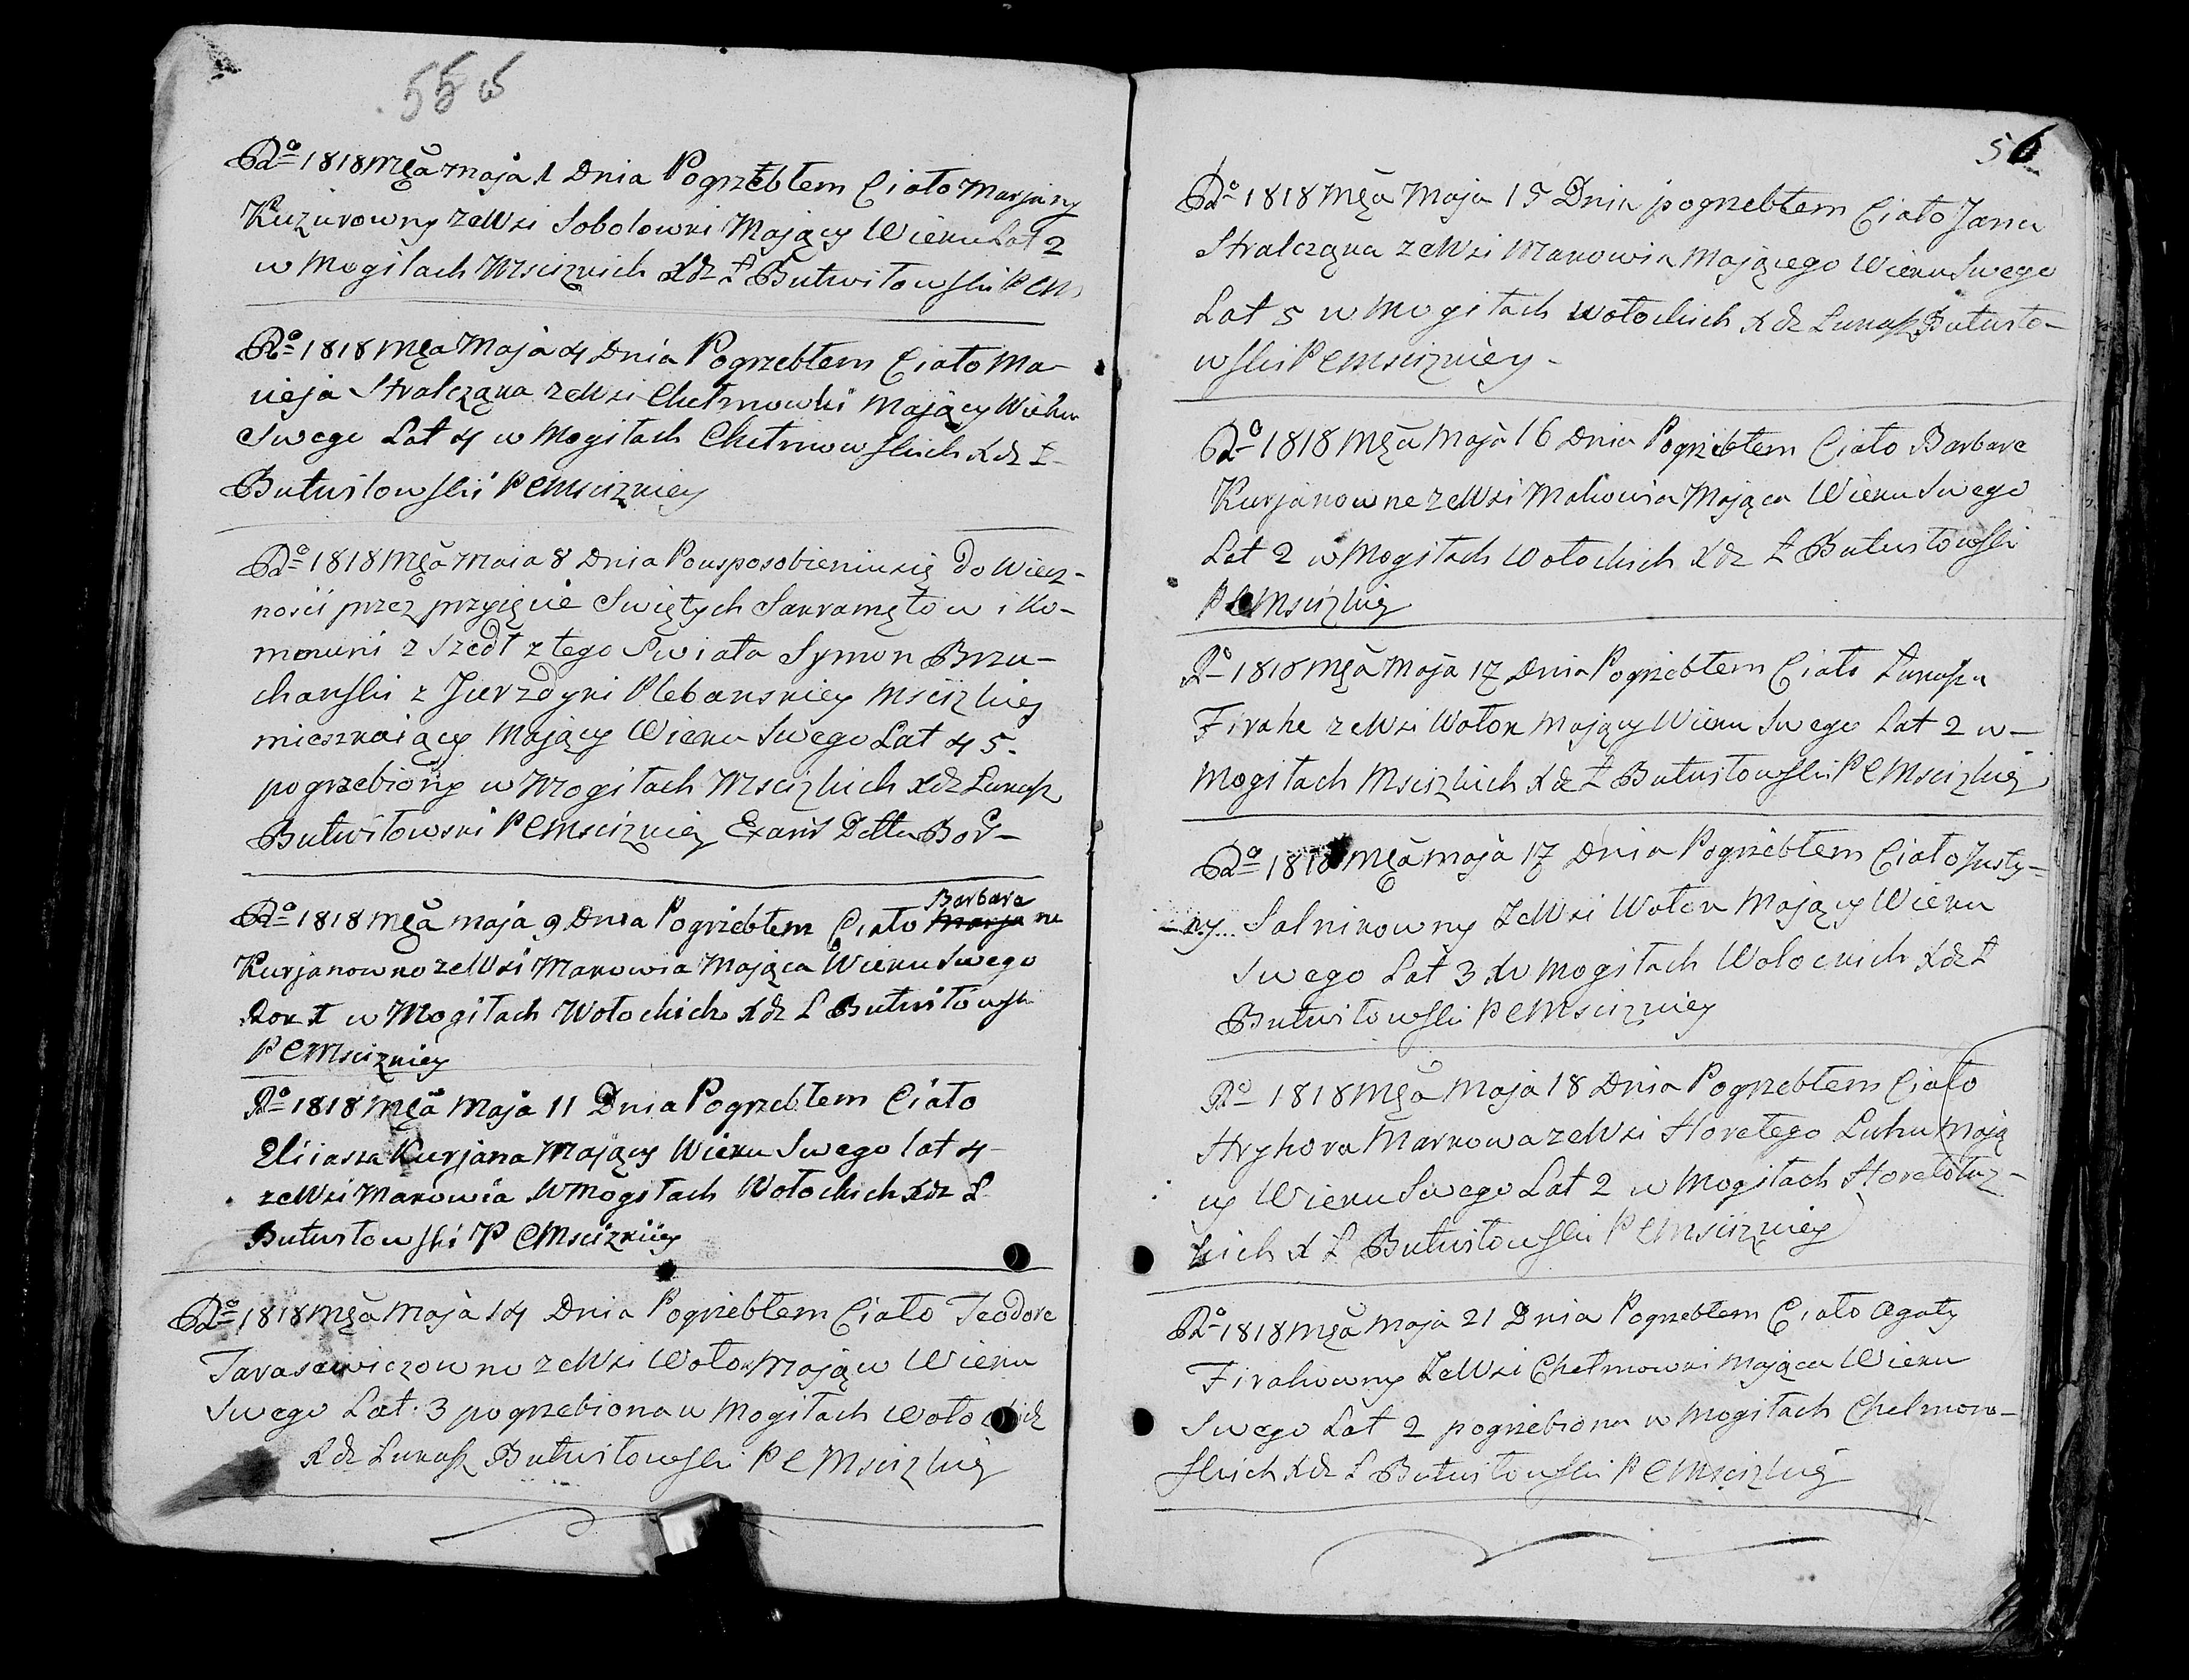 55
Ro 1818 Mca maja 1 Dnia Pogrzebłem Ciało Marjany
Kuzurowny zeWsi Sobolowki Mający Wieku Lat 2
w Mogiłach Mscizkich Xdz Ł Butwiłowski P C M
Ro 1818 Mca Maja 4 Dnia Pogrzebłem Ciało Ma-
cieja Stralcząka zeWsi Chełmowki Mający Wieku
Swego Lat 4 w Mogiłach Chełmowskich Xdz Ł
Butwiłowski P C Mscizkiey
Ro 1818 Mca Maia 8 Dnia Pousposobieniusię Do Wiecz-
nosci przez przyięcie Swiętych Sakramętow i Ko-
monuni z szedł z tego Swiata Symon Brzu-
chanski z Jurzdyki Plebanskiey Mscizkiey
mieszkaiący Mający Wieku Swego Lat 45
pogrzebiony w Mogiłach Mscizkich Xdz Łukasz
Butwiłowski P C Mscizkiey
Barbare
Ro 1818 Mca maja 9 Dnia Pogrzebłem Ciało Marja ne
Kurjanowno zeWsi Makowia Mająca Wieku Swego
Rok 1 w Mogiłach Wołockich Xdz Ł Butwiłowski
P C Mscizkiey
Ro 1818 Mca Maja 11 Dnia Pogrzebłem Ciało
Eliiasza Kurjana Mający Wieku Swego lat 4
zeWsi Makowia W Mogiłach Wołockich Xdz Ł
Butwiłowski P C Mscizkiey
Ro 1818 Mca Maja 14 Dnia Pogrzebłem Ciało Teodore
Tarasewiczowno zeWsi Wołok Mającw Wieku
Swego Lat 3 pogrzebiona w Mogiłach Wołockich
Xdz Łukasz Butwiłowski P C Mscizkiey
56
Ro 1818 Mca Maja 15 Dnia pogrzebłem Ciało Jana
Stralcząka zeWsi Makowia Mającego Wieku Swego
Lat 5 w Mogiłach Wołockich Xdz Łukasz Butwiło-
wski P C Mscizkiey
Ro 1818 Mca Maja 16 Dnia Pogrzebłem Ciało Barbare
Kurjanowne zeWsi Makowia Mająca Wieku Swego
Lat 2 w Mogiłach Wołockich Xdz Ł Butwiłowski
P C Mscizkiey
Ro 1818 Mca Maja 17 Dnia Pogrzebłem Ciało Łukasza
Firahe zeWsi Wołok Mający Wieku Swego Lat 2 w
Mogiłach Mscizkich Xdz Ł Butwiłowski P C Mscizkiey
Ro 1818 Mca maja 17 Dnia Pogrzebłem Ciało Justy-
ny Salnikowny ZeWsi Wołok Mający Wieku
Swego Lat 3 W Mogiłach Wołockich Xdz Ł
Butwiłowski P C Mscizkiey
Ro 1818 Mca Maja 18 Dnia Pogrzebłem Ciało
Hryhora Markowa zeWsi Horełego Luhu Mają
cy Wieku Swego Lat 2 w Mogiłach Horełołuz-
kich X Ł Butwiłowski P C Mscizkiey
Ro 1818 Mca Maja 21 Dnia Pogrzebłem Ciało Agaty
Firahowny ZeWsi Chełmowki Mająca Wieku
Swego Lat 2 pogrzebiona w Mogiłach Chełmow-
skich Xdz Ł Butwiłowski P C Mscizkiey